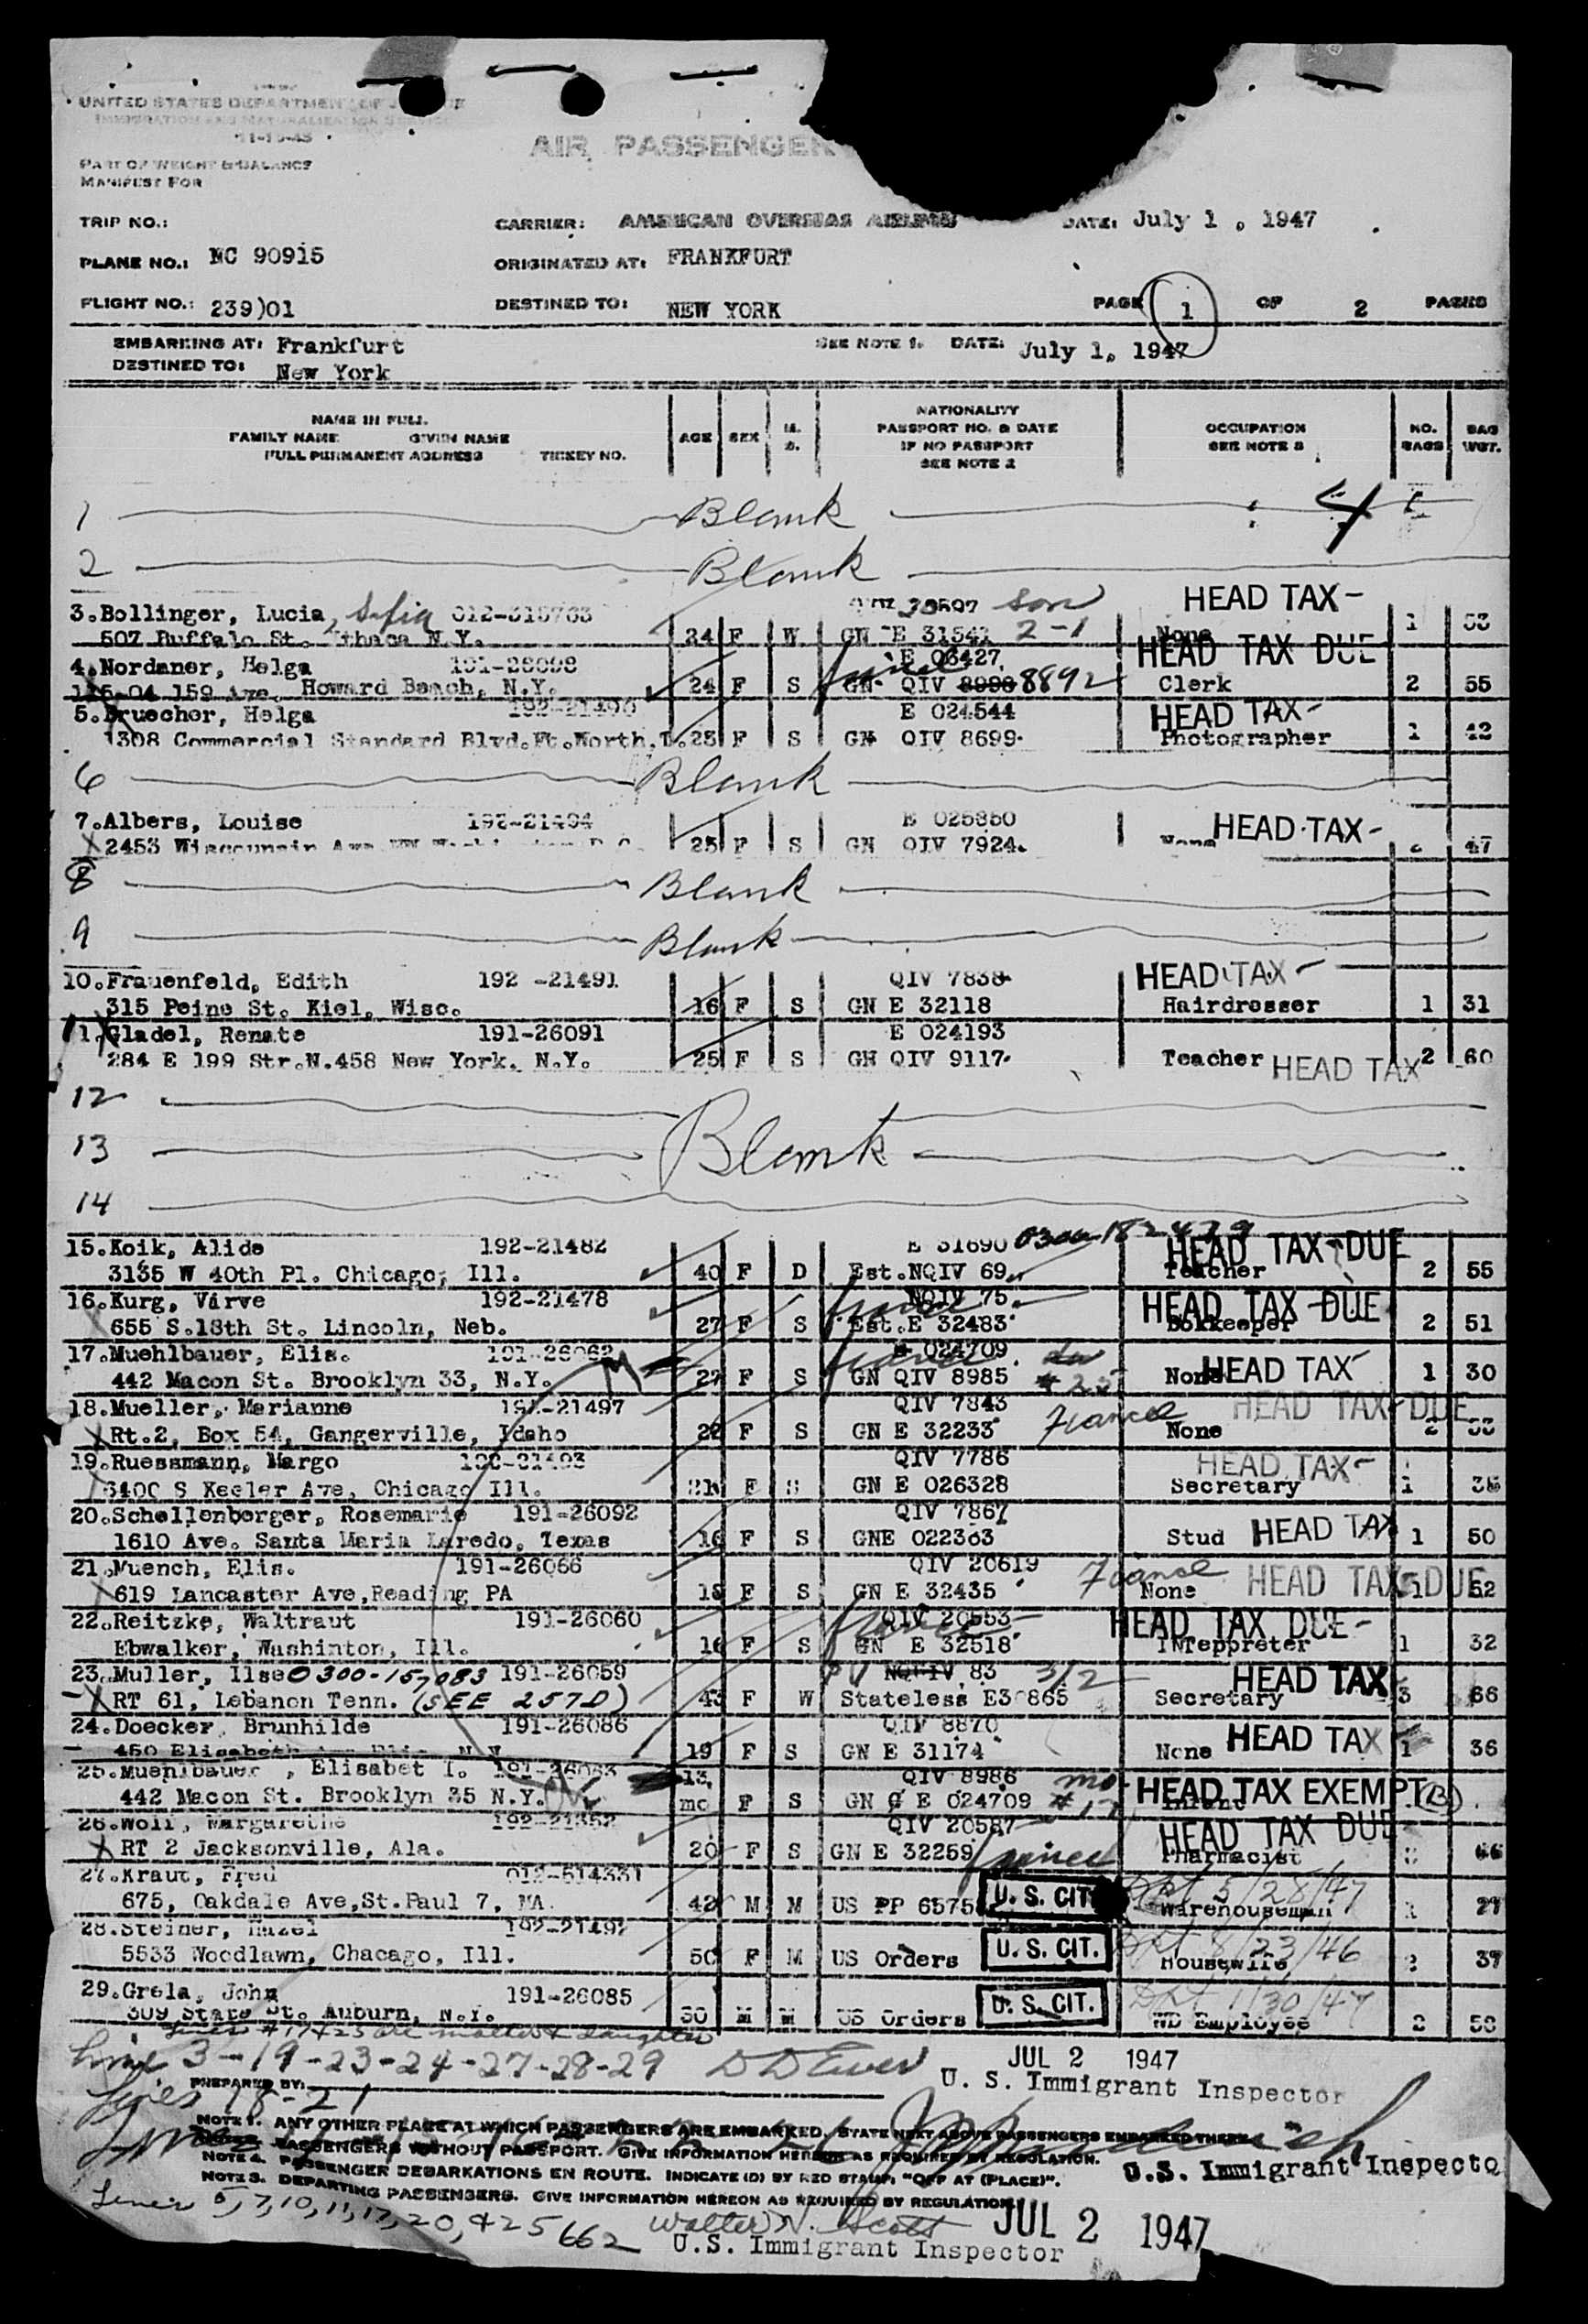 UNITED STATES DEPARTMENT OF
IMMIGRATION AND NATURALIZATION SERVICE
11-15-45
AIR PASSENGER
PART OF WEIGHT & BALANCE
MANIFEST FOR
TRIP NO.: CARRIER: AMERICAN OVERSEAS AIRLINES DATE: July 1, 1947
PLANE NO.: NC 90915 ORIGINATED AT: FRANKFURT
FLIGHT NO.: 239)01 DESTINED TO: NEW YORK PAGE 1 OF 2 PAGES
EMBARKING AT: Frankfurt SEE NOTE 1. DATE: July 1, 1947
DESTINED TO: New York
NAME IN FULL. NATIONALITY
FAMILY NAME GIVEN NAME AGE SEX M. PASSPORT NO. & DATE OCCUPATION NO. BAG
FULL PERMANENT ADDRESS TICKET NO. S. IF NO PASSPORT SEE NOTE 3 BAGS WGT.
SEE NOTE 2
1 Blank 4
2 Blank
3. Bollinger, Lucia, Sofia 012-315763 son HEAD TAX-
507 Buffalo St. Ithaca N.Y. 24 F W GN E 31541 2-1 None 1 53
4. Nordaner, Helga 191-26098 E 03427 HEAD TAX DUE
Howard Beach, N.Y. 24 F S GN QIV 8892 Clerk 2 55
5. Bruecher, Helga 192-21490 E 024544 HEAD TAX-
1308 Commercial Standard Blvd. Ft. Worth, T. 25 F S GN QIV 8699 Photographer 1 42
6 Blank
7. Albers, Louise 192-21494 E 025850 HEAD TAX-
2453 Wiscounsin Ave NW 25 F S GN QIV 7924. None 47
8 Blank
9 Blank
10. Frauenfeld, Edith 192 -21491 QIV 7838 HEAD TAX-
315 Peine St. Kiel, Wisc. 16 F S GN E 32118 Hairdresser 1 31
11. Gladel, Renate 191-26091 E 024193
284 E 199 Str.N.458 New York, N.Y. 25 F S GN QIV 9117 Teacher HEAD TAX 2 60
12
13 Blank
14
15. Koik, Alide 192-21482 E 31690 0300-182479 HEAD TAX-DUE
3135 W 40th Pl. Chicago, Ill. 40 F D Est. NQIV 69 Teacher 2 55
16. Kurg, Virve 192-21478 NQIV 75 HEAD TAX DUE
655 S.18th St. Lincoln, Neb. 27 F S Est. E 32483 Bokkeeper 2 51
17. Muehlbauer, Elis. 191-26062 E 024709
442 Macon St. Brooklyn 33, N.Y. 27 F S GN QIV 8985 #25 None HEAD TAX 1 30
18. Mueller, Marianne 192-21497 QIV 7843 HEAD TAX-DUE
Rt.2, Box 54, Gangerville, Idaho 22 F S GN E 32233 Fiancee None 2
19. Ruessmann, Margo QIV 7786 HEAD TAX-
6400 S Keeler Ave, Chicago Ill. 21 F S GN E 026328 Secretary 1
20. Schellenberger, Rosemarie 191-26092 QIV 7867
1610 Ave. Santa Maria Laredo, Texas 16 F S GNE 022363 Stud HEAD TAX 1 50
21. Muench, Elis. 191-26066 QIV 20619
619 Lancaster Ave, Reading PA 18 F S GN E 32435 Fiance None HEAD TAX DUE 1 52
22. Reitzke, Waltraut 191-26060 QIV 20553 HEAD TAX DUE-
Ebwalker, Washinton, Ill. 16 F S GN E 32518 INTeppreter 1 32
23. Muller, Ilse 0300-157083 191-26059 NQIV 83 3/2 HEAD TAX
RT 61, Lebanon Tenn. (SEE 257D) 43 F W Stateless E30865 Secretary 3 66
24. Doecker, Brunhilde 191-26086 QIV 8870
450 Elisabeth 19 F S GN E 31174 None HEAD TAX 1 36
25. Muehlbauer, Elisabet I. 191-26063 13 QIV 8986 mo-
442 Macon St. Brooklyn 35 N.Y. mo F S GN E 024709 #17 Infant HEAD TAX EXEMPT (B)
26. Wolf, Margarethe 192-21352 QIV 20587 HEAD TAX DUE
RT 2 Jacksonville, Ala. 20 F S GN E 32259 fiancee Pharmacist 66
27. Kraut, Fred 012-514331 Dpt 5/28/47
675, Oakdale Ave, St. Paul 7, MA. 42 M M US PP 6575 U. S. CIT. Warehouseman
28. Steiner, Hazel 192-21492 Dpt 8/23/46
5533 Woodlawn, Chacago, Ill. 50 F M US Orders U. S. CIT. Housewife 2 37
29. Grela, John 191-26085 Dpt 1/30/47
309 State St. Auburn, N.Y. 30 M M US Orders U. S. CIT. WD Employee 2 58
Lines #17 & 25 are mother & daughter
Line 3-19-23-24-27-28-29 JUL 2 1947
PREPARED BY: U. S. Immigrant Inspector
Lines 18-21
NOTE 1. ANY OTHER PLACE AT WHICH PASSENGERS ARE EMBARKED. STATE NEXT ABOVE PASSENGERS EMBARKED THERE.
PASSENGERS WITHOUT PASSPORT. GIVE INFORMATION HEREON AS REQUIRED BY REGULATION.
NOTE 4. PASSENGER DEBARKATIONS EN ROUTE. INDICATE (D) BY RED STAMP, "OFF AT (PLACE)". U.S. Immigrant Inspecto
NOTE 3. DEPARTING PASSENGERS. GIVE INFORMATION HEREON AS REQUIRED BY REGULATION.
Lines 5, 7, 10, 11, 17, 20, & 25 662 Walter N. Scott JUL 2 1947
U.S. Immigrant Inspector